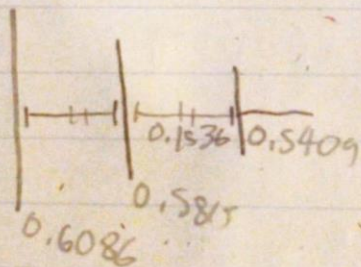 0.1536 0.5409
0.5815
0.6086